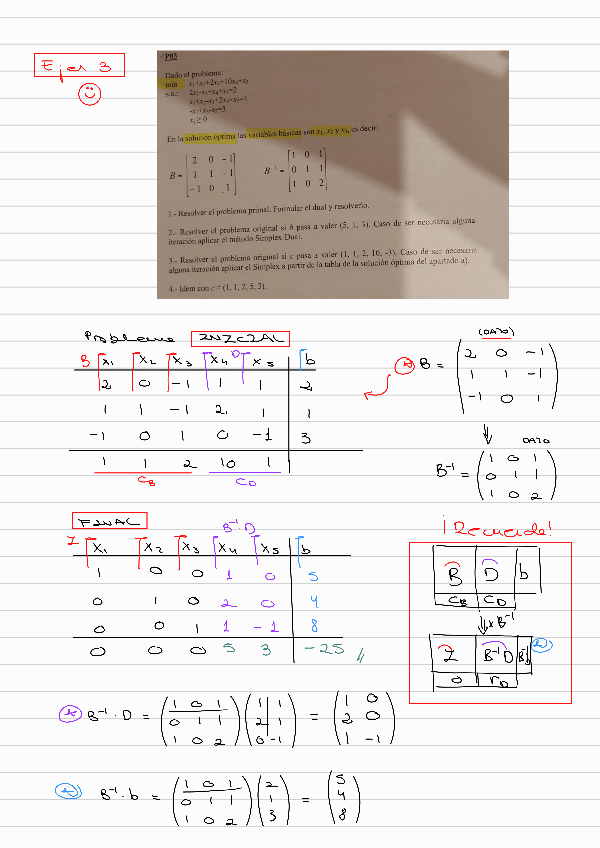 Ejer 3
P03
Dado el problema:
min x₁+x₂+2x₃+10x₄+x₅
s.a.: 2x₁-x₃+x₄+x₅=2
x₁+x₂-x₃+2x₄+x₅=1
-x₁+x₃-x₅=3
xᵢ ≥ 0
En la solución óptima las variables básicas son x₁, x₂ y x₃, es decir:
B = [2 0 -1; 1 1 -1; -1 0 1] B⁻¹ = [1 0 1; 0 1 1; 1 0 2]
1.- Resolver el problema primal. Formular el dual y resolverlo.
2.- Resolver el problema original si b pasa a valer (5, 1, 3). Caso de ser necesaria alguna
iteración aplicar el método Simplex Dual.
3.- Resolver el problema original si c pasa a valer (1, 1, 2, 10, -3). Caso de ser necesaria
alguna iteración aplicar el Simplex a partir de la tabla de la solución óptima del apartado a).
4.- Idem con c = (1, 1, 2, 5, 3).
Problema INICIAL
B x₁ x₂ x₃ x₄ D x₅ b
2 0 -1 1 1 2
1 1 -1 2 1 1
-1 0 1 0 -1 3
1 1 2 10 1
C_B C_D
(DATO)
B = (2 0 -1; 1 1 -1; -1 0 1)
DATO
B⁻¹ = (1 0 1; 0 1 1; 1 0 2)
FINAL
B⁻¹·D
I x₁ x₂ x₃ x₄ x₅ b
1 0 0 1 0 5
0 1 0 2 0 4
0 0 1 1 -1 8
0 0 0 5 3 -25
¡Recuerda!
B D b
C_B C_D
xB⁻¹
I B⁻¹D B⁻¹b
0 r_D
B⁻¹·D = (1 0 1; 0 1 1; 1 0 2) (1 1; 2 1; 0 -1) = (1 0; 2 0; 1 -1)
B⁻¹·b = (1 0 1; 0 1 1; 1 0 2) (2; 1; 3) = (5; 4; 8)